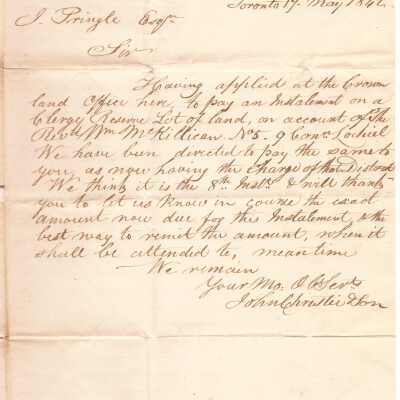 Toronto 17. May 1842.
J. Pringle Esqr.
Sir
Having applied at the Crown
land Office here, to pay an Instalment on a
Clergy Reserve Lot of land, on account of the
Revd. Wm. McKillican. No 5. 9 Conn. Lochiel
We have been directed to pay the same to
you, as now having the Charge of that District
We think it is the 8th. Inst. & will thank
you to let us know in course the exact
amount now due for this Instalment, & the
best way to remit the amount, when it
shall be attended to, meantime
We remain
Your Mo. Ob Servts
John Christie & Son